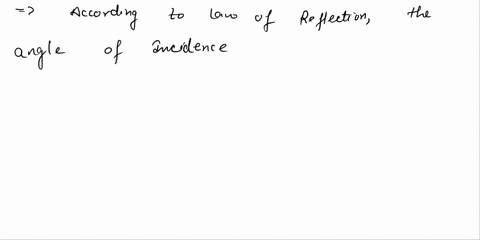 => According to Law of Reflection, the
angle of Incidence